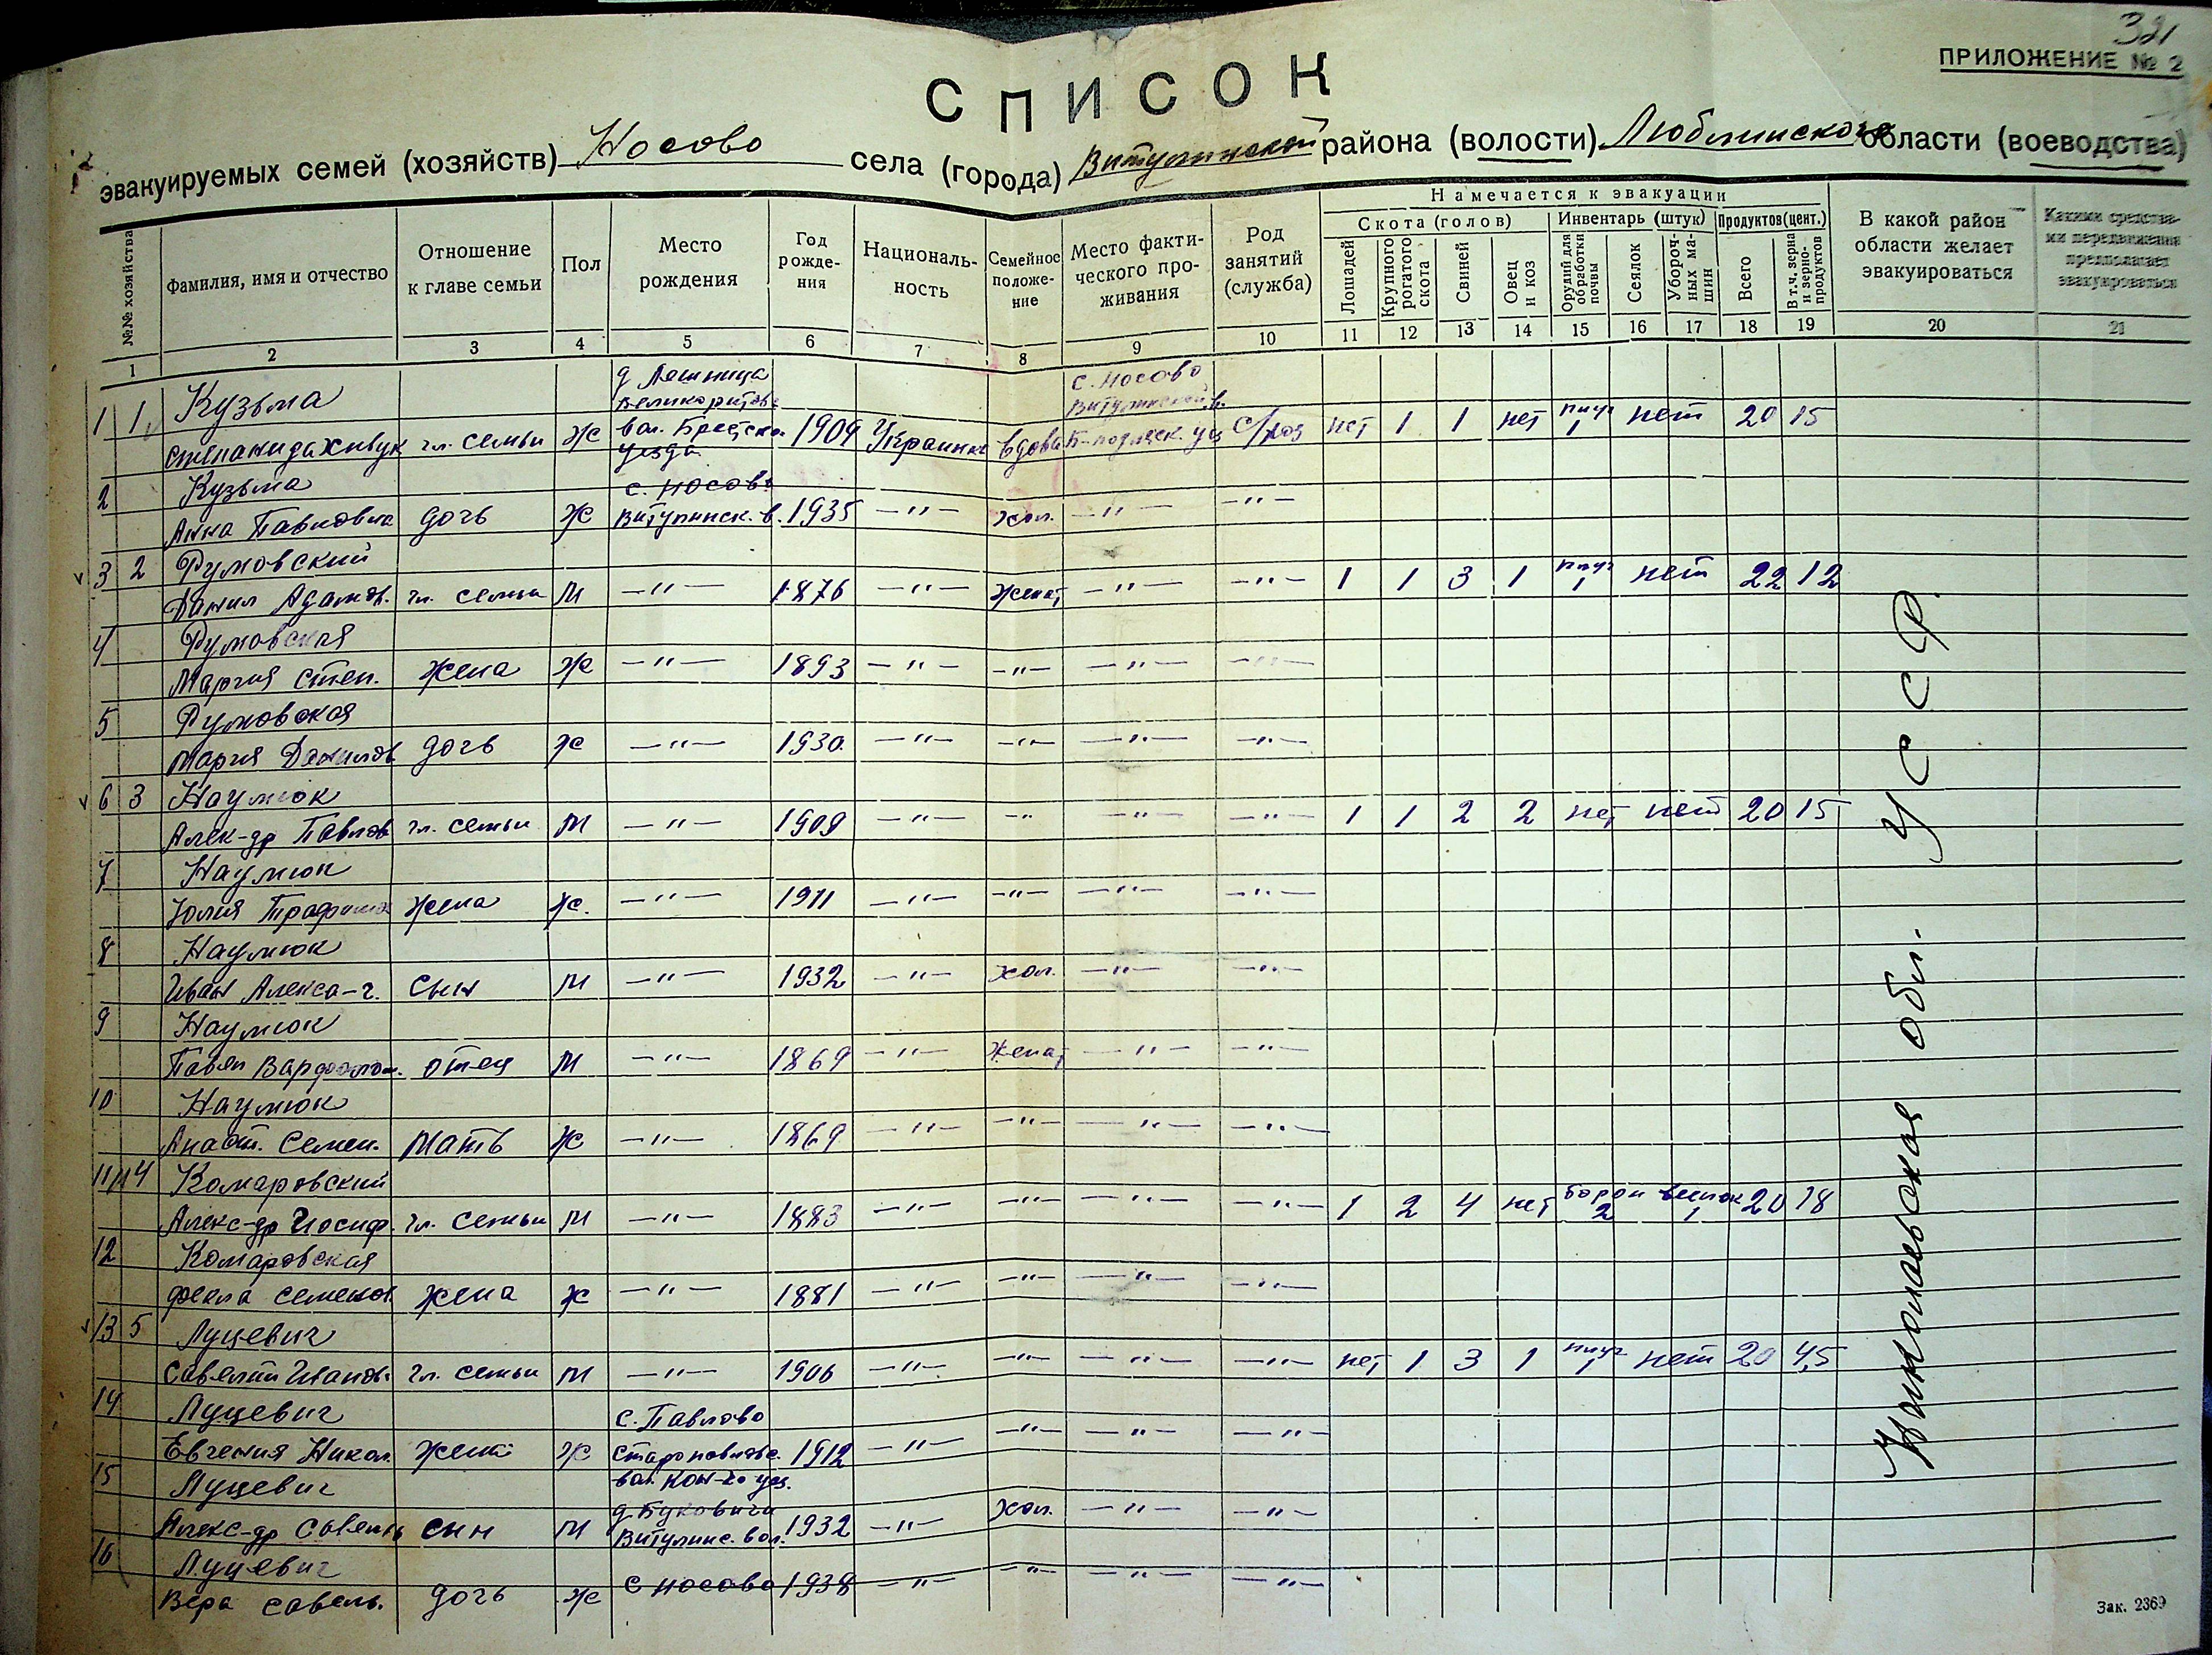 321
ПРИЛОЖЕНИЕ № 2
СПИСОК
эвакуируемых семей (хозяйств) Носово села (города) Витулинской района (волости) Люблинского области (воеводства)
№№ хозяйства
Фамилия, имя и отчество
Отношение к главе семьи
Пол
Место рождения
Год рожде-ния
Националь-ность
Семейное положе-ние
Место факти-ческого про-живания
Род занятий (служба)
Намечается к эвакуации
Скота (голов)
Инвентарь (штук)
Продуктов (цент.)
Лошадей
Крупного рогатого скота
Свиней
Овец и коз
Орудий для обработки почвы
Сеялок
Убороч-ных ма-шин
Всего
В т.ч. зерна и зерно-продуктов
В какой район области желает эвакуироваться
Какими средства-ми передвижения предполагает эвакуироваться
1 2 3 4 5 6 7 8 9 10 11 12 13 14 15 16 17 18 19 20 21
д. Лешница с. Носово
1 1 Кузьма Великоритов. Витулинской в.
Степанида Живук гл. семьи Ж вол. Брестско. 1909 Украинка вдова Б-подляск. уез с/хоз нет 1 1 нет плуг 1 нет 20 15
уезда
2 Кузьма с. Носово
Анна Павловна дочь Ж Витулинск. в. 1935 —"— хол. —"— —"—
3 2 Румовский
Данил Адамов. гл. семьи М —"— 1876 —"— женат —"— —"— 1 1 3 1 плуг 1 нет 22 12
4 Румовская
Мария Степ. жена Ж —"— 1893 —"— —"— —"— —"—
5 Румовская
Мария Данилов дочь Ж —"— 1930 —"— —"— —"— —"—
6 3 Наумюк
Алек-др Павлов гл. семьи М —"— 1909 —"— —"— —"— —"— 1 1 2 2 нет нет 20 15
7 Наумюк
Юлия Трофимов жена Ж. —"— 1911 —"— —"— —"— —"—
8 Наумюк
Иван Алекса-ч. сын М —"— 1932 —"— хол. —"— —"—
9 Наумюк
Павел Варфолом. отец М —"— 1869 —"— женат —"— —"—
10 Наумюк
Анаст. Семен. мать Ж —"— 1869 —"— —"— —"— —"—
11 4 Комаровский
Алекс-др Иосиф. гл. семьи М —"— 1883 —"— —"— —"— —"— 1 2 4 нет борон 2 1 20 18
12 Комаровская
Фекла Семенов. жена Ж —"— 1881 —"— —"— —"— —"—
13 5 Луцевич
Савелий Иванов. гл. семьи М —"— 1906 —"— —"— —"— —"— нет 1 3 1 плуг 1 нет 20 4,5
14 Луцевич с. Павлово
Евгения Никол. жена Ж Старопавловс. 1912 —"— —"— —"— —"—
вол. Кон-го уез.
15 Луцевич д. Буковичи
Алекс-др Савель сын М Витулинс. вол. 1932 —"— хол. —"— —"—
16 Луцевич
Вера Савель. дочь Ж с Носово 1938 —"— —"— —"— —"—
Николаевская обл. УССР
Зак. 2369